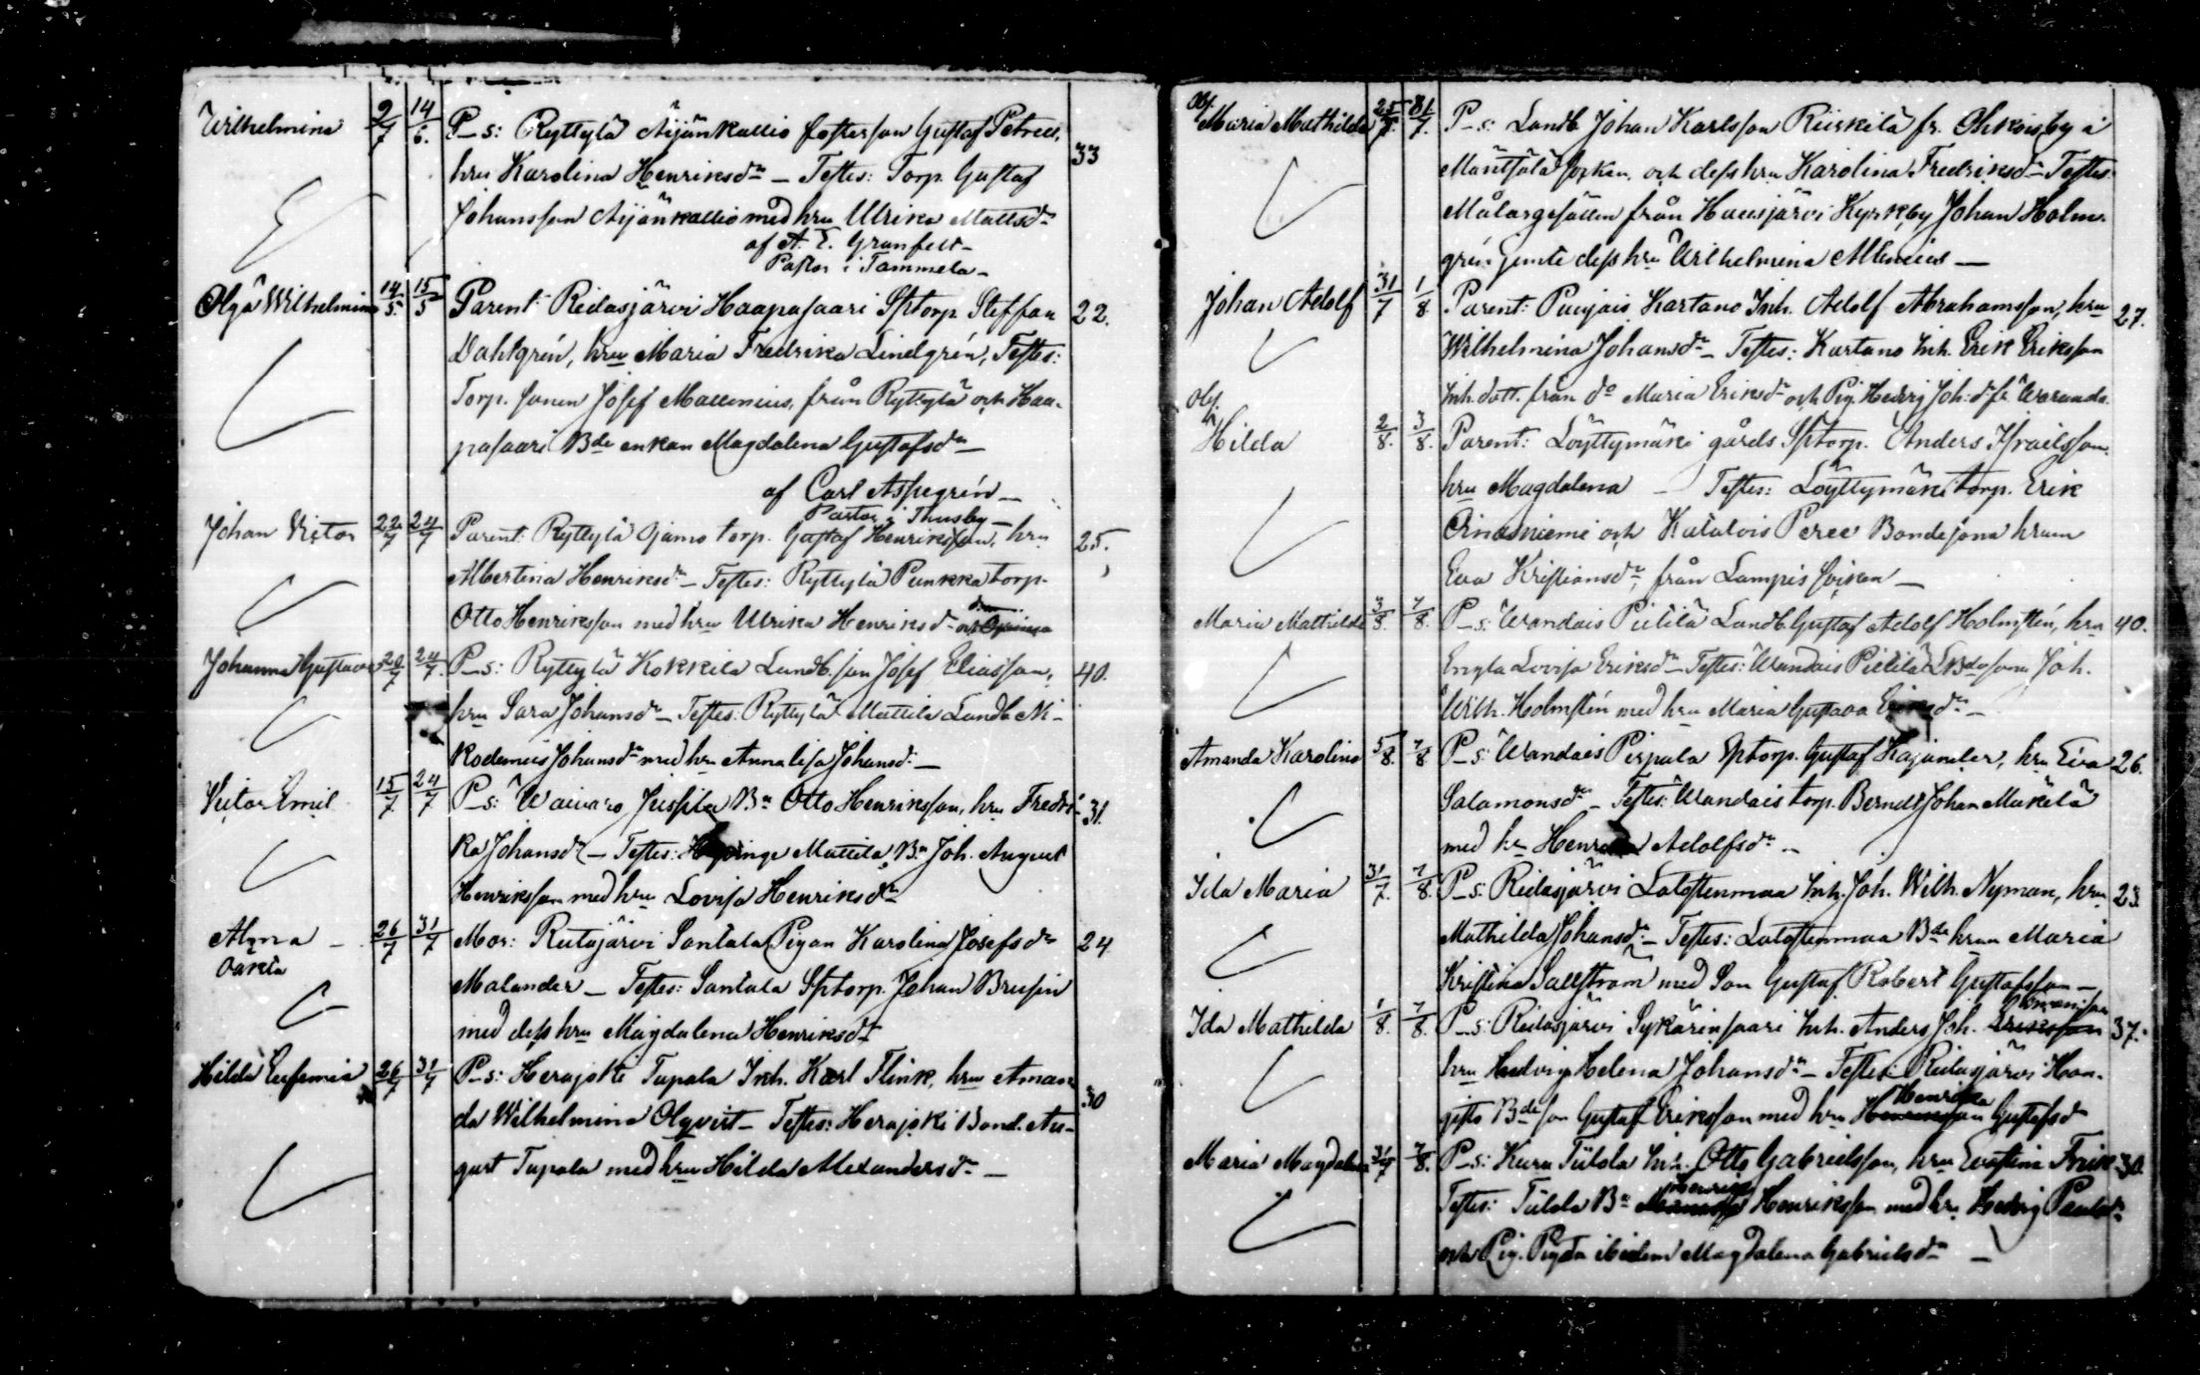 Wilhelmina 2/7 14/6. P_s: Ryttylä Äijänkallio fosterson Gustaf Petrus,
hru Karolina Henriksdr – Testes: Torp. Gustaf 33
Johansson Äijänkallio med hru Ulrika Mattsdr
af A. E. Granfelt –
Pastor i Tammela –
Olga Wilhelmina 14/5 15/5 Parent: Ridasjärvi Haapasaari Sptorp Steffan 22.
Dahlgrén, hru Maria Fredrika Lindgrén, Testes:
Torp. sonen Josef Mallenius, från Ryttylä och Haa-
pasaari Bde enkan Magdalena Gustafsdr –
af Carl Aspegrén –
Pastor i Thusby –
Johan Victor 22/7 24/7 Parent: Ryttylä Ojamo torp. Gustaf Henriksson, hru 25.
Albertina Henriksdr – Testes: Ryttylä Punkka torp.
Otto Henriksson med hru Ulrika Henriksdr
Johanna Gustava 20/7 24/7. P_s: Ryttylä Kokkila Landb. son Josef Eliasson, 40.
hru Sara Johansdr – Testes: Ryttylä Mattila Landb. Ni-
kodemus Johansdr med hru Annalisa Johansdr –
Victor Emil 15/7 24/7 P_s: Waivaro Jussila Bn Otto Henriksson, hru Fredri- 31.
ka Johansdr – Testes: Hyvinge Mattila Bn Joh. August
Henriksson med hru Lovisa Henriksdr
Alma – 26/7 31/7 Mor: Rutajärvi Santala Pigan Karolina Josefsdr 24
oäkta
Malander – Testes: Santala Sptorp. Johan Brusin
med dess hru Magdalena Henriksdr
Hilda Eufemia 26/7 31/7 P_s: Herajoki Tupala Inh. Karl Flink, hru Aman-
da Wilhelmina Olqvist – Testes: Herajoki Bond. Au- 30
gust Tupala med hru Hilda Alexandersdr –
Obj. Maria Mathilda 25/7. 31/7. P_s: Landb Johan Karlsson Riiskilä fr. Ohkoisby i
Mäntsälä socken, och dess hru Karolina Fredriksdr – Testes
Målargesällen från Hausjärvi Kyrkby Johan Holm-
grén jemte dess hru Wilhelmina Allenius –
Johan Adolf 31/7 1/8 Parent: Puujais Kartano Inh. Adolf Abrahamsson, hru 27.
Wilhelmina Johansdr – Testes: Kartano Inh. Erik Eriksson
Inh. dott. från do Maria Eriksdr och Pig. Hedvig Joh:dr fr.
Obj Hilda 2/8. 3/8. Parent: Löyttymäki gårds Sptorp. Anders Israelsson
hru Magdalena – Testes: Löyttymäki torp. Erik
Orinoniemi och Katalois Peree Bondesona hrun
Eva Kristiansdr, från Lampis socken –
Maria Mathilda 3/8. 7/8. P_s: Wandais Pietilä Landb. Gustaf Adolf Holmstén, hru 40.
Engla Lovisa Eriksdr – Testes: Wandais Pietilä Joh.
Wilh. Holmstén med hru Maria Gustava
Amanda Karolina 5/8. 7/8 P_s: Wandais Pirpala Sptorp. Gustaf Kajander, hru Eva 26.
Salamonsdr – Testes: Wandais torp. Berndt Johan Mäkelä
med hru Adolfsdr –
Ida Maria 31/7. 7/8 P_s: Ridasjärvi Latostenmaa Inh. Joh. Wilh. Nyman, hru 23.
Mathilda Johansdr – Testes: Latostenmaa Bde hrun Maria
Kristina Sallström med Son Gustaf Robert Gustafsson –
Ida Mathilda 1/8. 7/8. P_s: Ridasjärvi Sykärinsaari Inh. Anders Joh. Eriksson 37.
hru Hedvig Helena Johansdr – Testes: Ridasjärvi Han-
gisto Bde son Gustaf Eriksson med hru Henrika Gustafsdr
Maria Magdalena 31/7 7/8. P_s: Kara Tiilola Inh. Otto Gabrielsson, hru Evastina Frisk 30.
Testes: Tiilola Bn Henrik Henriksson med hru Hedvig Paulsdr
och Pig. ibidem Magdalena Gabrielsdr –